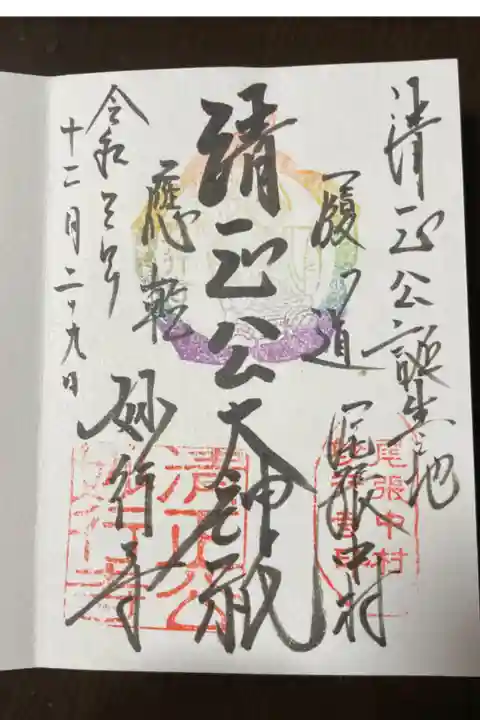 清正公誕生之地
履道
應乾
尾張中村
清正公大神祇
妙行寺
令和三年
十二月二十九日
尾張中村
清正公